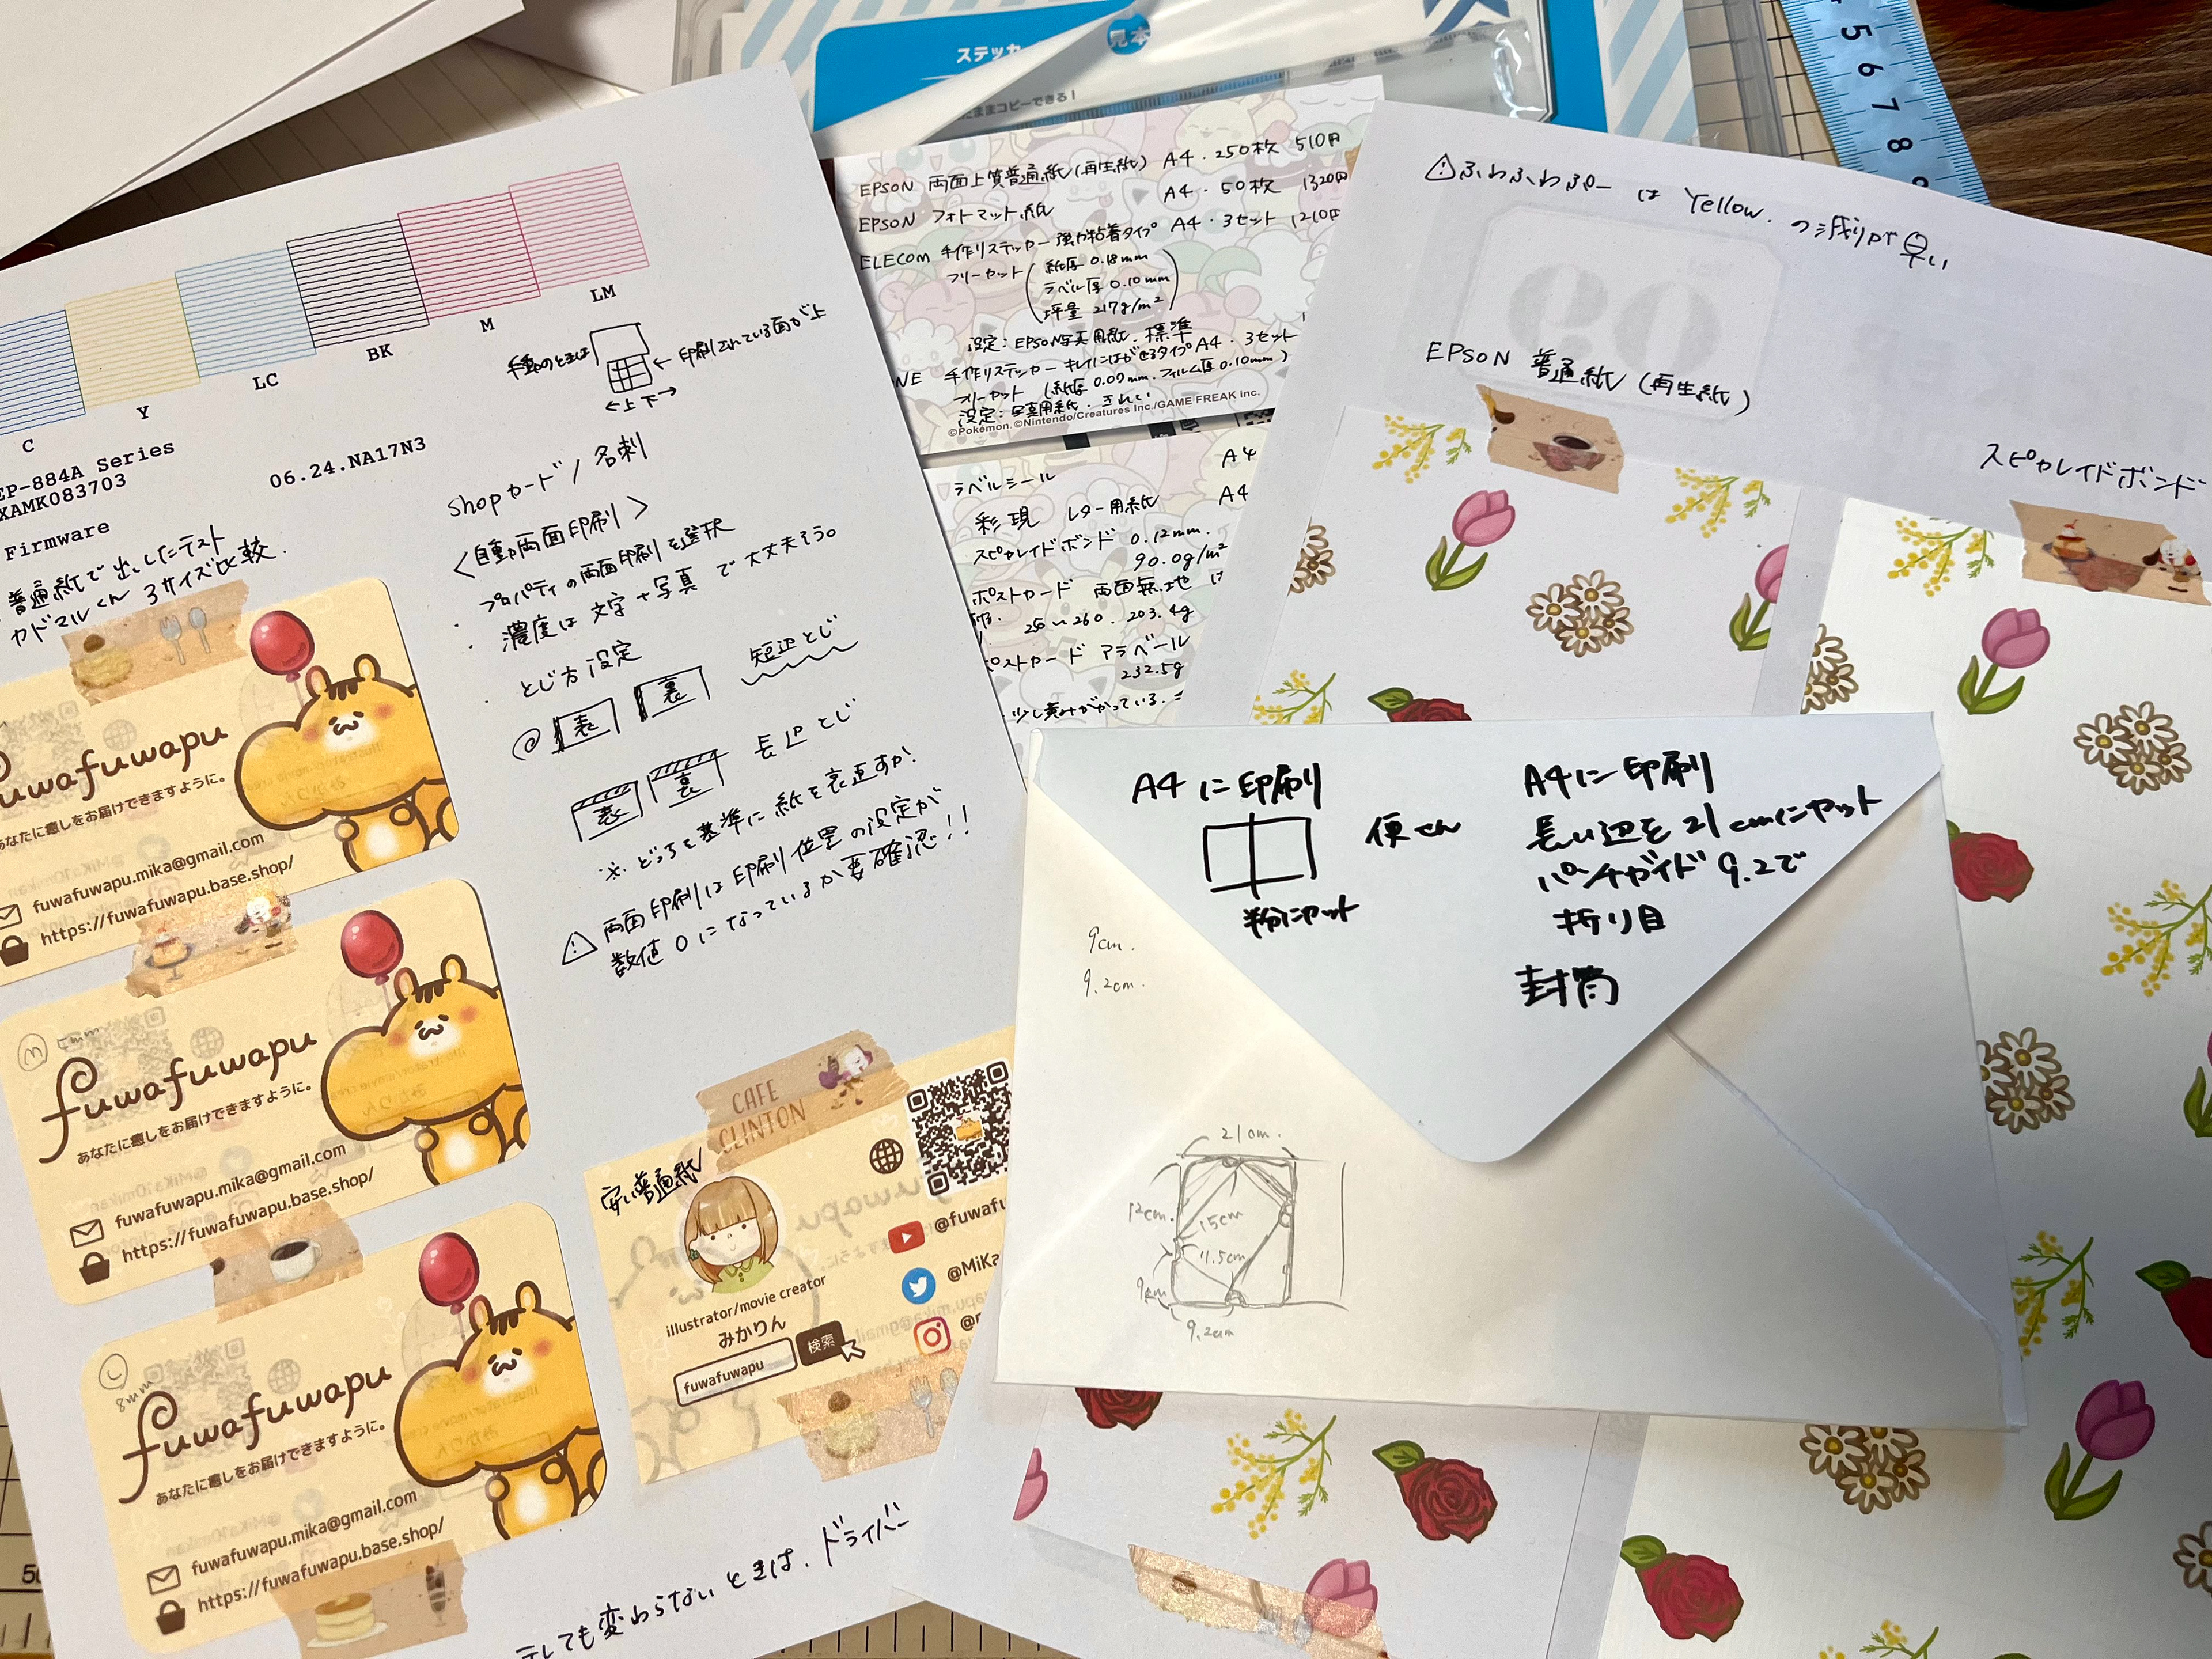 ステッカ
見本
ままコピーできる！
5
6
7
8
C
Y
LC
BK
M
LM
EP-884A Series
XAMK083703
06.24.NA17N3
Firmware
普通紙で出したテスト
カドマルくん 3サイズ比較.
手動のときは
印刷されている面が上
←上下→
shopカード/名刺
<自動両面印刷>
・プロパティの両面印刷を選択
・濃度は文字+写真 で大丈夫そう。
・とじ方設定
◎ 表 裏 短辺とじ
表 裏 長辺とじ
※どっちを基準に紙を裏返すか!
⚠両面印刷は印刷位置の設定が
数値0になっているか要確認!!
fuwafuwapu
あなたに癒しをお届けできますように。
fuwafuwapu.mika@gmail.com
https://fuwafuwapu.base.shop/
M
fuwafuwapu
あなたに癒しをお届けできますように。
fuwafuwapu.mika@gmail.com
https://fuwafuwapu.base.shop/
L
8mm
fuwafuwapu
あなたに癒しをお届けできますように。
fuwafuwapu.mika@gmail.com
https://fuwafuwapu.base.shop/
CAFE
CLINTON
安い普通紙
illustrator/movie creator
みかりん
fuwafuwapu
検索
@fuwafu
@MiKa
しても変わらないときは、ドライバー
EPSON 両面上質普通紙(再生紙) A4・250枚 510円
EPSON フォトマット紙 A4・50枚 1320円
ELECOM 手作りステッカー強力粘着タイプ A4・3セット 1210円
フリーカット
紙厚 0.18mm
ラベル厚 0.10mm
坪量 217g/m²
設定：EPSON写真用紙.標準
NE 手作りステッカー キレイにはがせるタイプA4・3セット
フリーカット (紙厚0.09mm.フィルム厚0.10mm)
設定：写真用紙.きれい
©Pokémon. ©Nintendo/Creatures Inc./GAME FREAK inc.
ラベルシール A4
彩現 レター用紙 A4
スピカレイドボンド 0.12mm.
90.0g/m²
ポストカード 両面無地
203.4g
ポストカード アラベール
232.5g
少し黄みがかっている.
⚠ふわふわぷーは Yellow.の減りが早い
EPSON 普通紙(再生紙)
スピカレイドボンド
A4に印刷
半分にカット
便せん
A4に印刷
長い辺を21cmにカット
パンチガイド9.2で
折り目
封筒
9cm.
9.2cm.
21cm.
12cm.
15cm
11.5cm
9cm
9.2cm